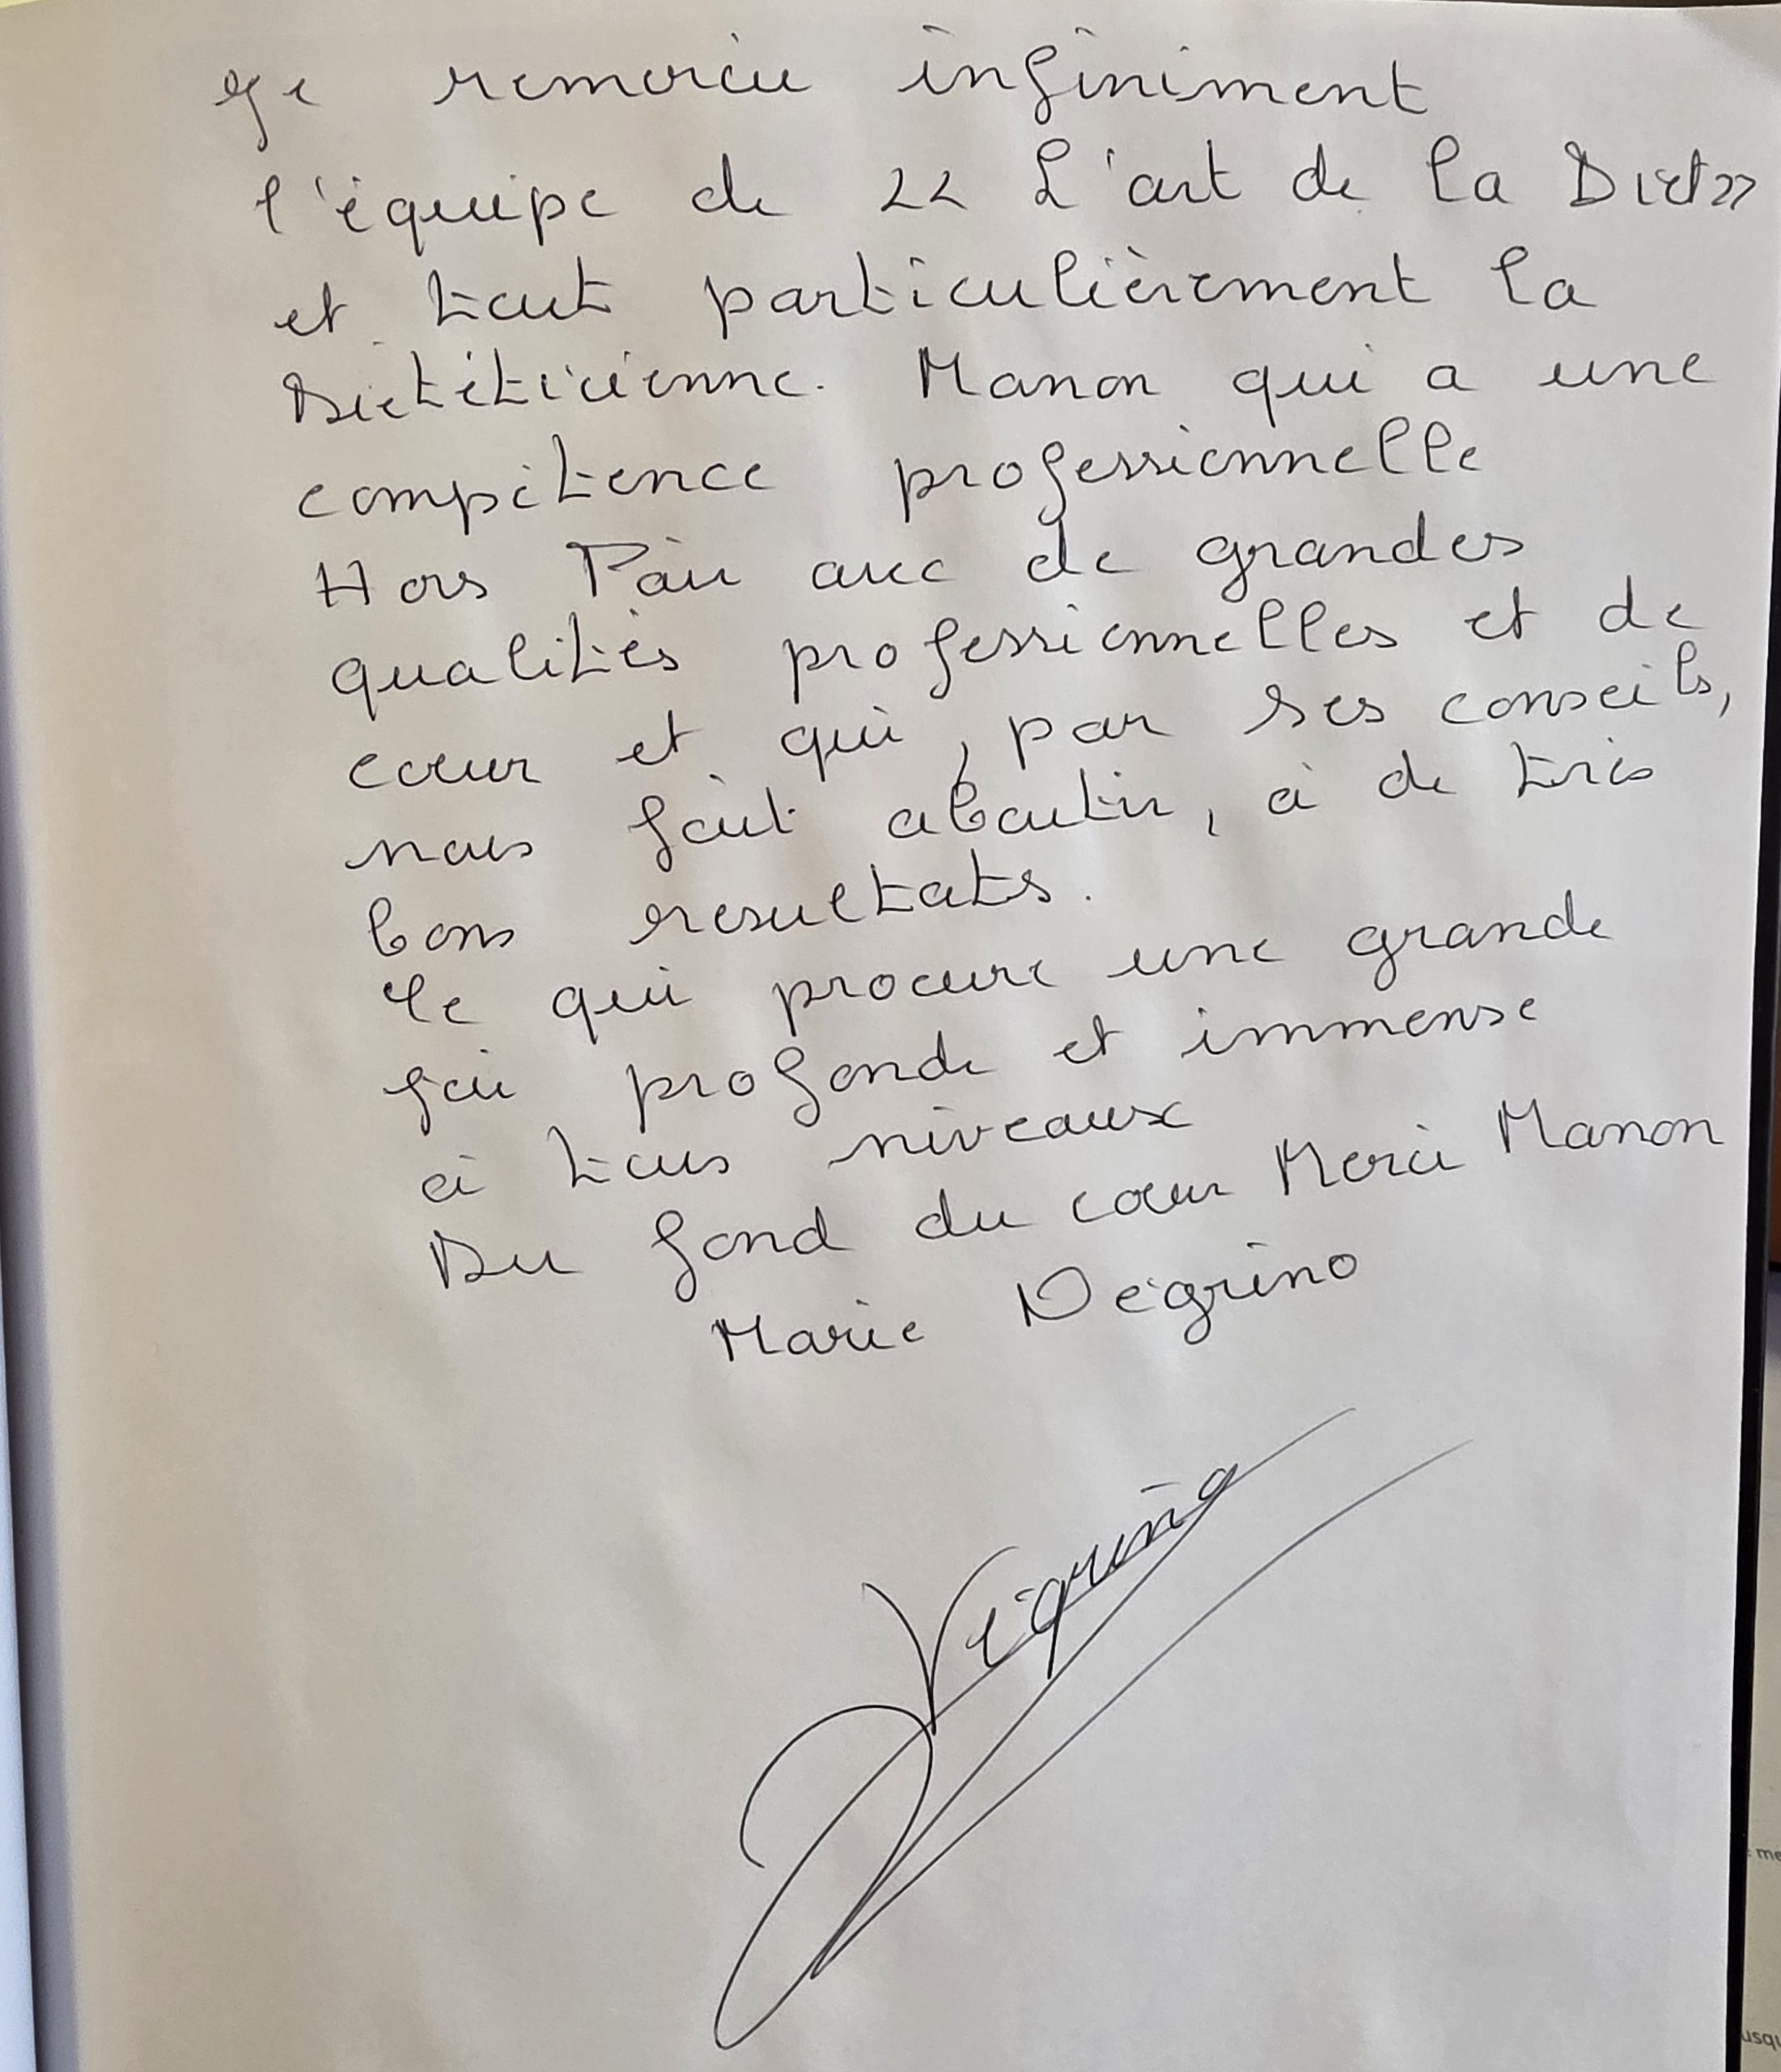 Je remercie infiniment
l'équipe de << L'art de la Diet >>
et tout particulièrement la
Diététicienne. Manon qui a une
compétence professionnelle
Hors Pair avec de grandes
qualités professionnelles et de
cœur et qui, par ses conseils,
nous fait aboutir, à de très
bons resultats.
Ce qui procure une grande
joie profonde et immense
à tous niveaux
Du fond du cœur Merci Manon
Marie Végrino
Végrino
me
usqu